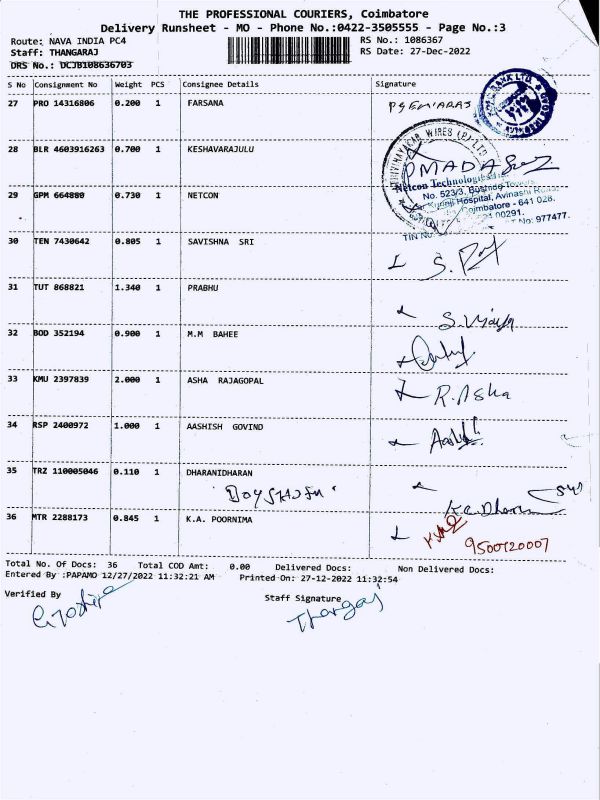 THE PROFESSIONAL COURIERS, Coimbatore
Delivery Runsheet - MO - Phone No.:0422-3505555 - Page No.:3
Route: NAVA INDIA PC4 RS No.: 1086367
Staff: THANGARAJ RS Date: 27-Dec-2022
DRS No.: DCJB108636703
S No Consignment No Weight PCS Consignee Details Signature
27 PRO 14316806 0.200 1 FARSANA
28 BLR 4603916263 0.700 1 KESHAVARAJULU
WIRES (P) LTD
Netcon Technologies
29 GPM 664880 0.730 1 NETCON
No. 523/3,
Hospital, Avinashi
Coimbatore - 641 028.
00291.
No: 977477.
TIN No
30 TEN 7430642 0.805 1 SAVISHNA SRI
31 TUT 868821 1.340 1 PRABHU
32 BOD 352194 0.900 1 M.M BAHEE
33 KMU 2397839 2.000 1 ASHA RAJAGOPAL R. Asha
34 RSP 2400972 1.000 1 AASHISH GOVIND
35 TRZ 110005046 0.110 1 DHARANIDHARAN
36 MTR 2288173 0.845 1 K.A. POORNIMA
9500720007
Total No. Of Docs: 36 Total COD Amt: 0.00 Delivered Docs: Non Delivered Docs:
Entered By :PAPAMO 12/27/2022 11:32:21 AM Printed On: 27-12-2022 11:32:54
Verified By Staff Signature
Thangaj